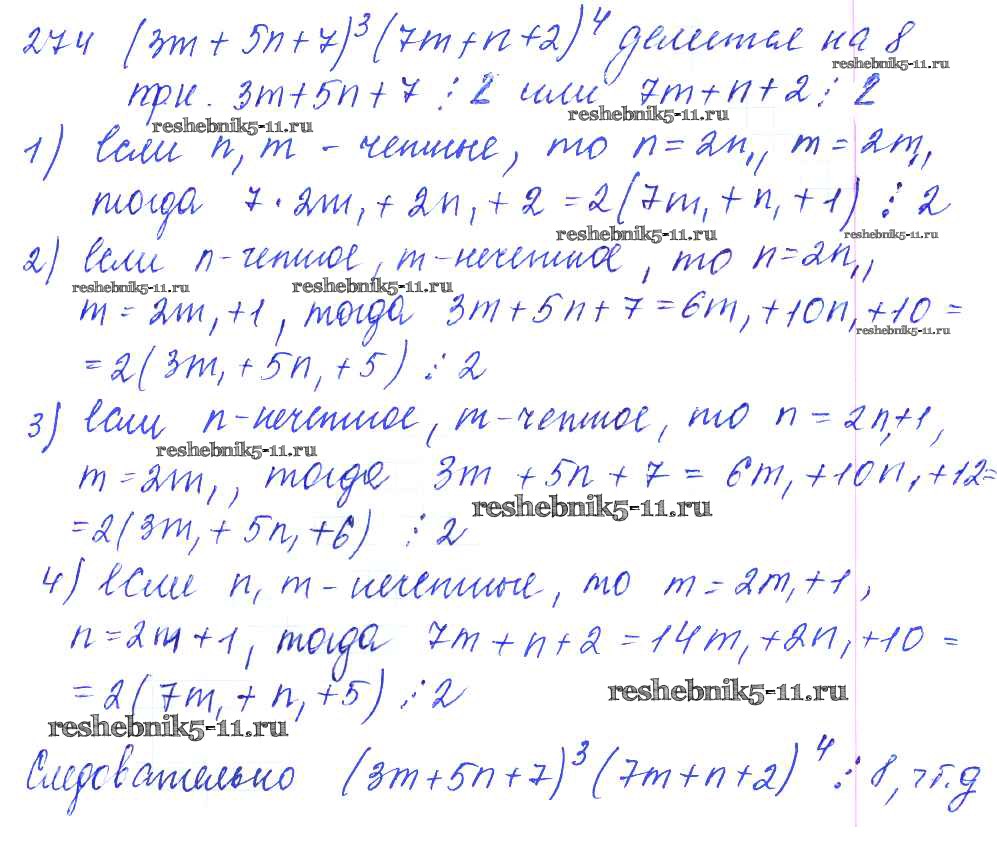 274 (3m + 5n + 7)³ (7m + n + 2)⁴ делится на 8
reshebnik5-11.ru
при. 3m + 5n + 7 ⋮ 2 или 7m + n + 2 ⋮ 2
reshebnik5-11.ru reshebnik5-11.ru
1) если n, m - четные, то n = 2n₁, m = 2m₁,
тогда 7 · 2m₁ + 2n₁ + 2 = 2(7m₁ + n₁ + 1) ⋮ 2
reshebnik5-11.ru reshebnik5-11.ru
2) если n - четное, m - нечетное, то n = 2n₁,
reshebnik5-11.ru reshebnik5-11.ru
m = 2m₁ + 1, тогда 3m + 5n + 7 = 6m₁ + 10n₁ + 10 =
reshebnik5-11.ru
= 2(3m₁ + 5n₁ + 5) ⋮ 2
3) если n - нечетное, m - четное, то n = 2n₁ + 1,
reshebnik5-11.ru
m = 2m₁, тогда 3m + 5n + 7 = 6m₁ + 10n₁ + 12 =
reshebnik5-11.ru
= 2(3m₁ + 5n₁ + 6) ⋮ 2
4) если n, m - нечетные, то m = 2m₁ + 1,
n = 2m + 1, тогда 7m + n + 2 = 14m₁ + 2n₁ + 10 =
= 2(7m₁ + n₁ + 5) ⋮ 2
reshebnik5-11.ru
reshebnik5-11.ru
Следовательно (3m + 5n + 7)³ (7m + n + 2)⁴ ⋮ 8, чт.д